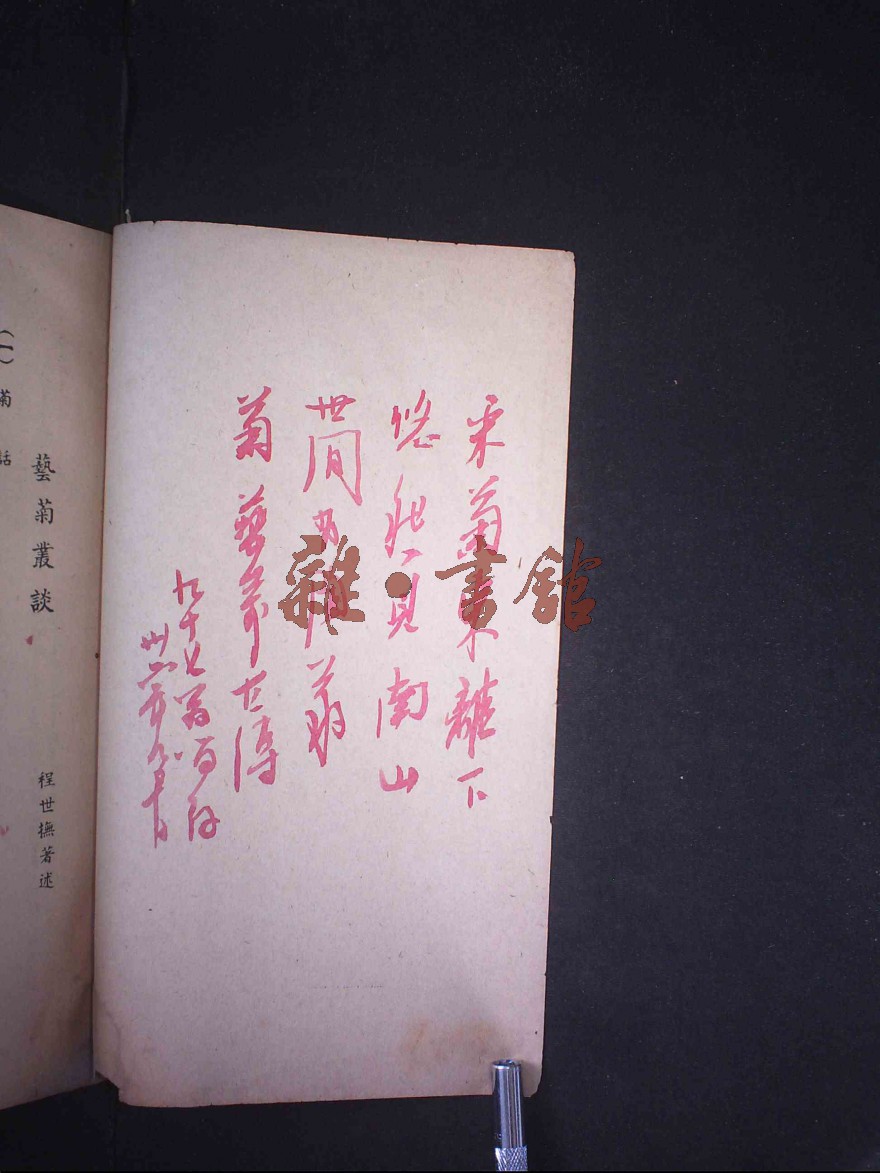 采菊東籬下
悠然見南山
世間翁
菊藝傳
九十七翁
卅六年九月
雜·書館
藝菊叢談
程世撫著述
(一) 菊話